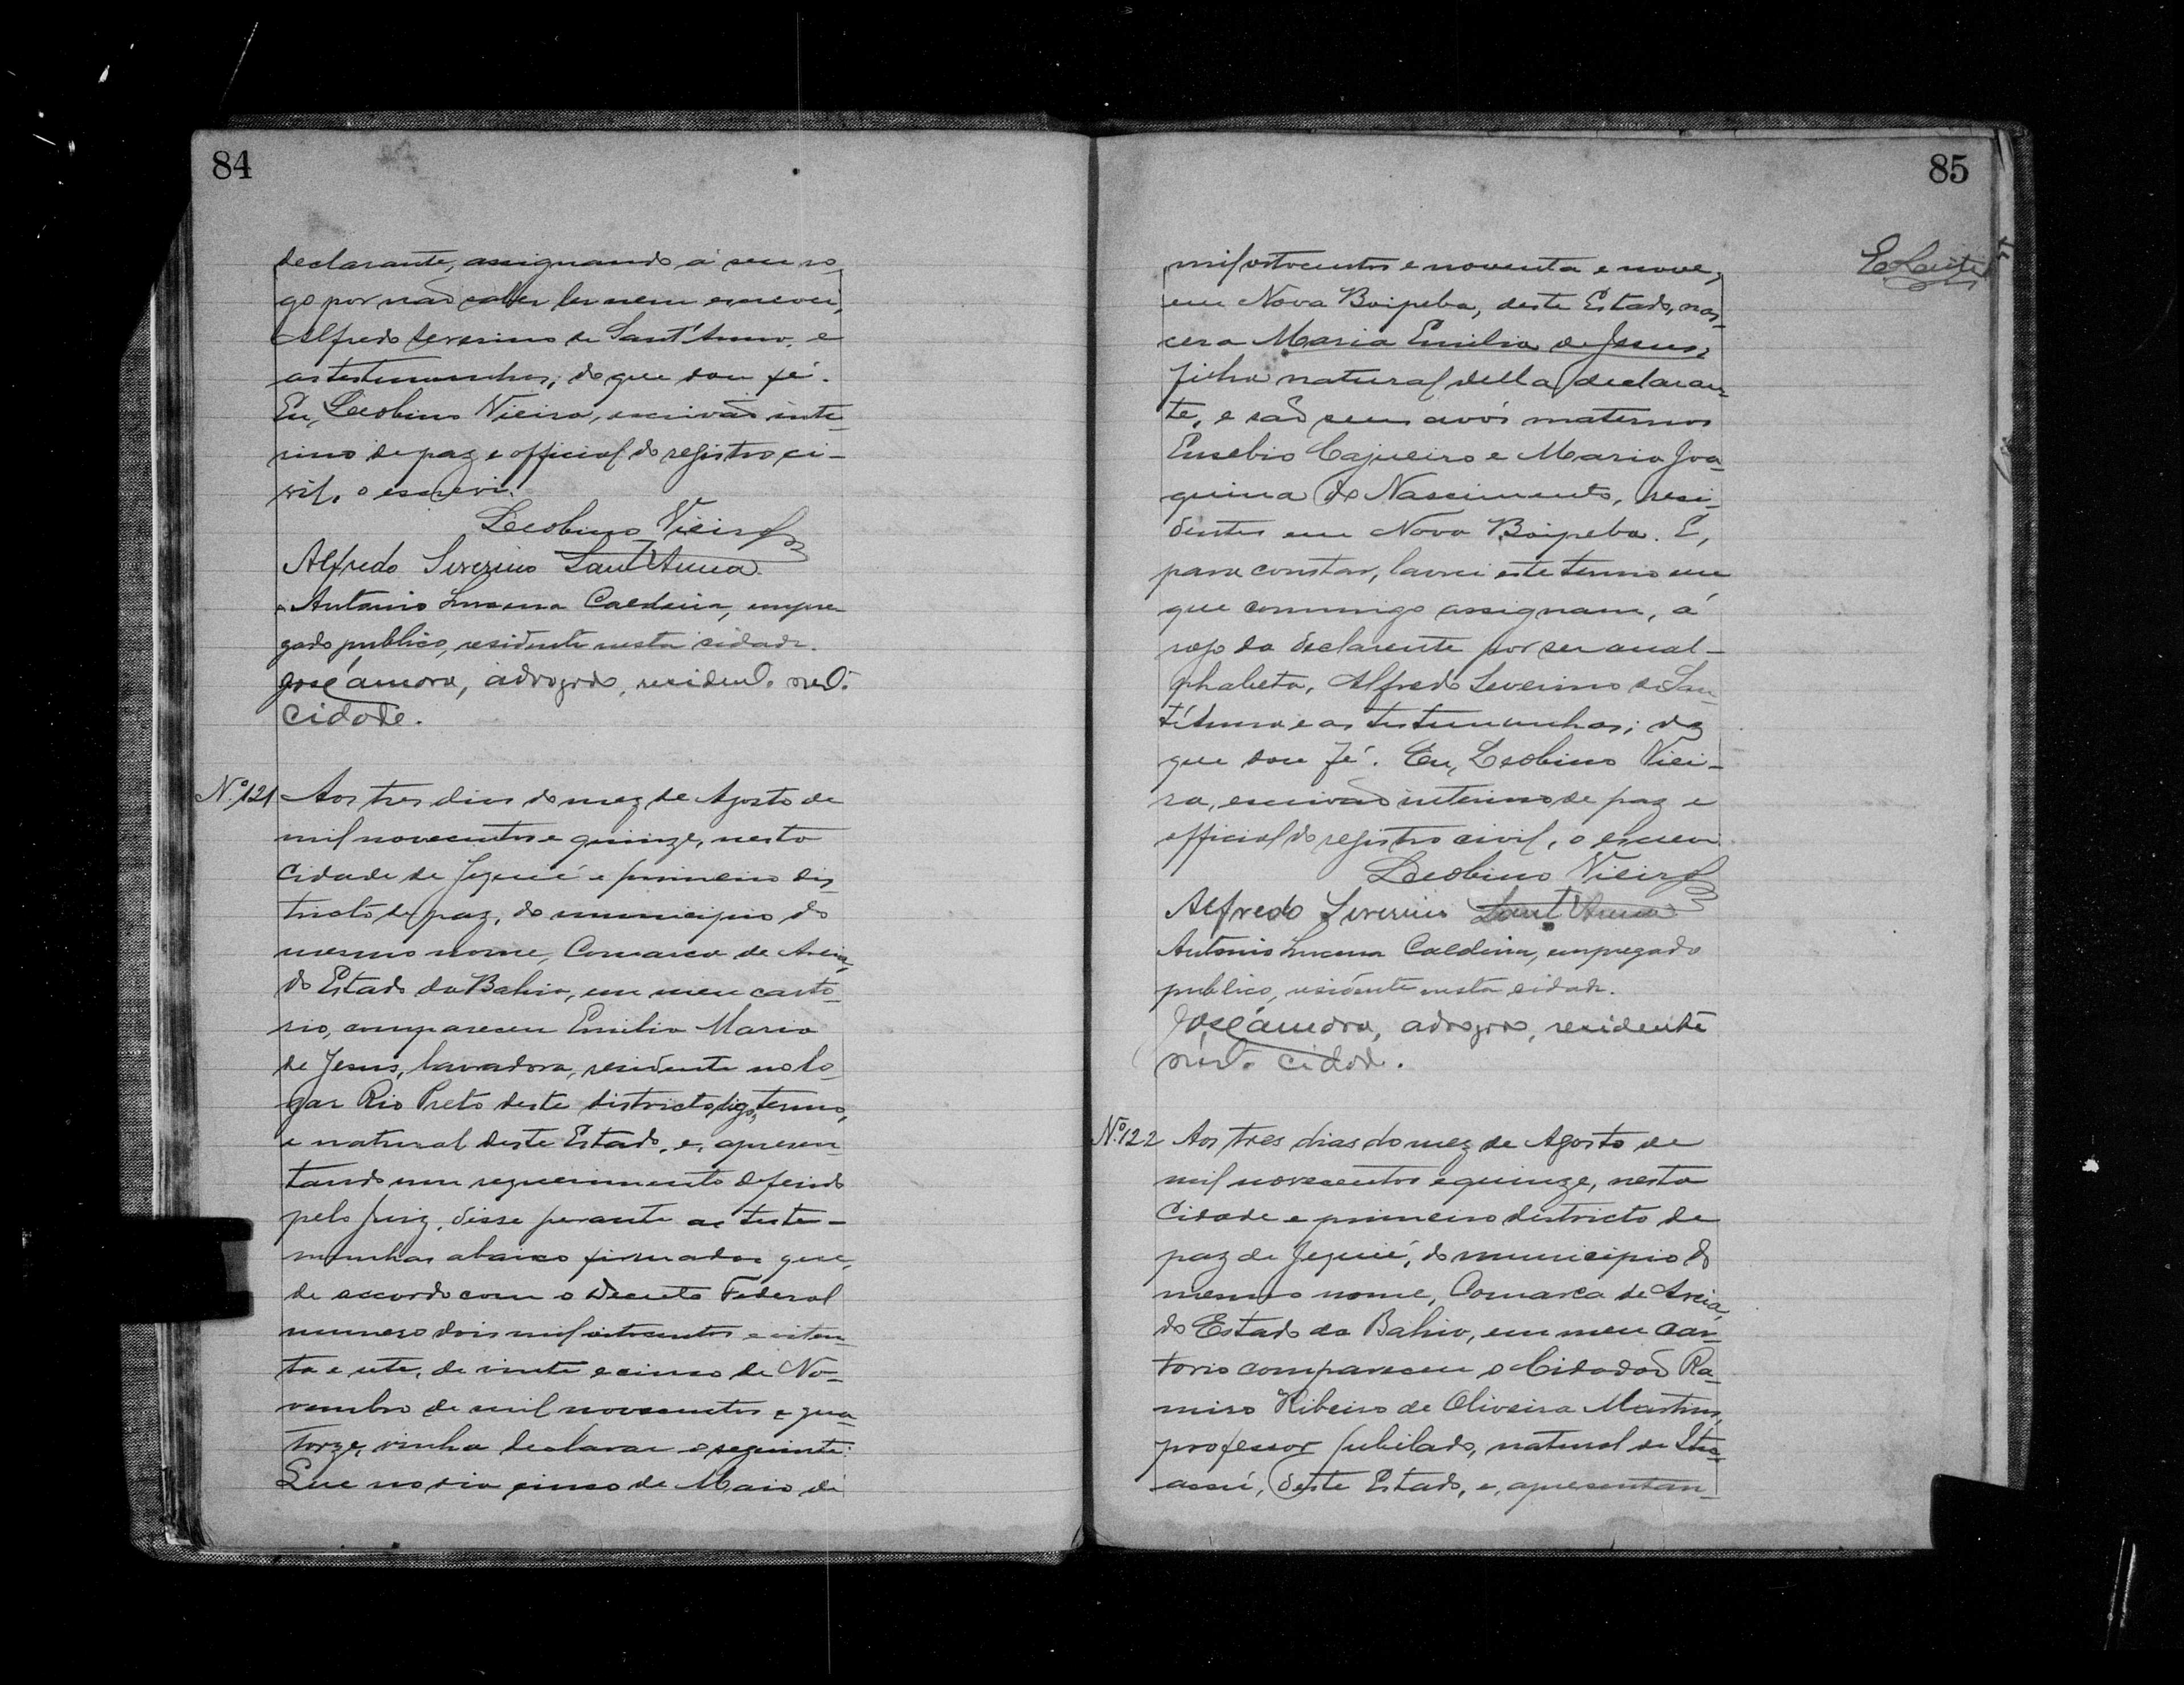 84
declarante, assignando á seu ro-
go por não saber ler nem escrever,
Alfredo Severino de Sant'Anna, e
as testemunhas; do que dou fé.
Eu, Leobino Vieira, escrivão inte-
rino de paz e official do registro ci-
vil, o escrevi.
Leobino Vieira
Alfredo Severino Sant'Anna
Antonio Lucena Caldeira, empre-
gado publico, residente nesta cidade.
José amora, advogado, resident. nest.
cidade.
Nº 121 Aos tres dias do mez de Agosto de
mil novecentos e quinze, nesta
Cidade de Jequié e primeiro dis-
tricto de paz, do municipio do
mesmo nome, Comarca de Areia,
do Estado da Bahia, em meu carto-
rio, compareceu Emilia Maria
de Jesus, lavradora, residente no lo-
gar Rio Preto deste districto, digo, termo,
e natural deste Estado, e, apresen-
tando um requerimento deferido
pelo Juiz, disse perante as teste-
munhas abaixo firmadas que,
de accordo com o Decreto Federal
numero dois mil oitocentos e oiten-
ta e sete, de vinte e cinco de No-
vembro de mil novecentos e qua-
torze, vinha declarar o seguinte:
Que no dia cinco de Maio de
85
mil oitocentos e noventa e nove,
em Nova Boipeba, deste Estado, nas-
cera Maria Emilia de Jesus,
filha natural della declaran-
te, e são seus avós maternos
Eusebio Cajueiro e Maria Joa-
quina do Nascimento, resi-
dentes em Nova Boipeba. E,
para constar, lavrei este termo em
que commigo assignam, á
rogo da declarente por ser anal-
phabeta, Alfredo Severino de San-
t'Anna e as testemunhas; do
que dou fé. Eu, Leobino Viei-
ra, escrivão interino de paz e
official do registro civil, o escrevi.
Leobino Vieira
Alfredo Severino Sant'Anna
Antonio Lucena Caldeira, empregado
publico, residente nesta cidade.
José amora, advogado, residente
nest. cidade.
Nº 122 Aos tres dias do mez de Agosto de
mil novecentos e quinze, nesta
Cidade e primeiro destricto de
paz de Jequié, do municipio do
mesmo nome, Comarca de Areia,
do Estado da Bahia, em meu car-
torio compareceu o Cidadão Ra-
miro Ribeiro de Oliveira Martins,
professor jubilado, natural de
assú, deste Estado, e, apresentan-